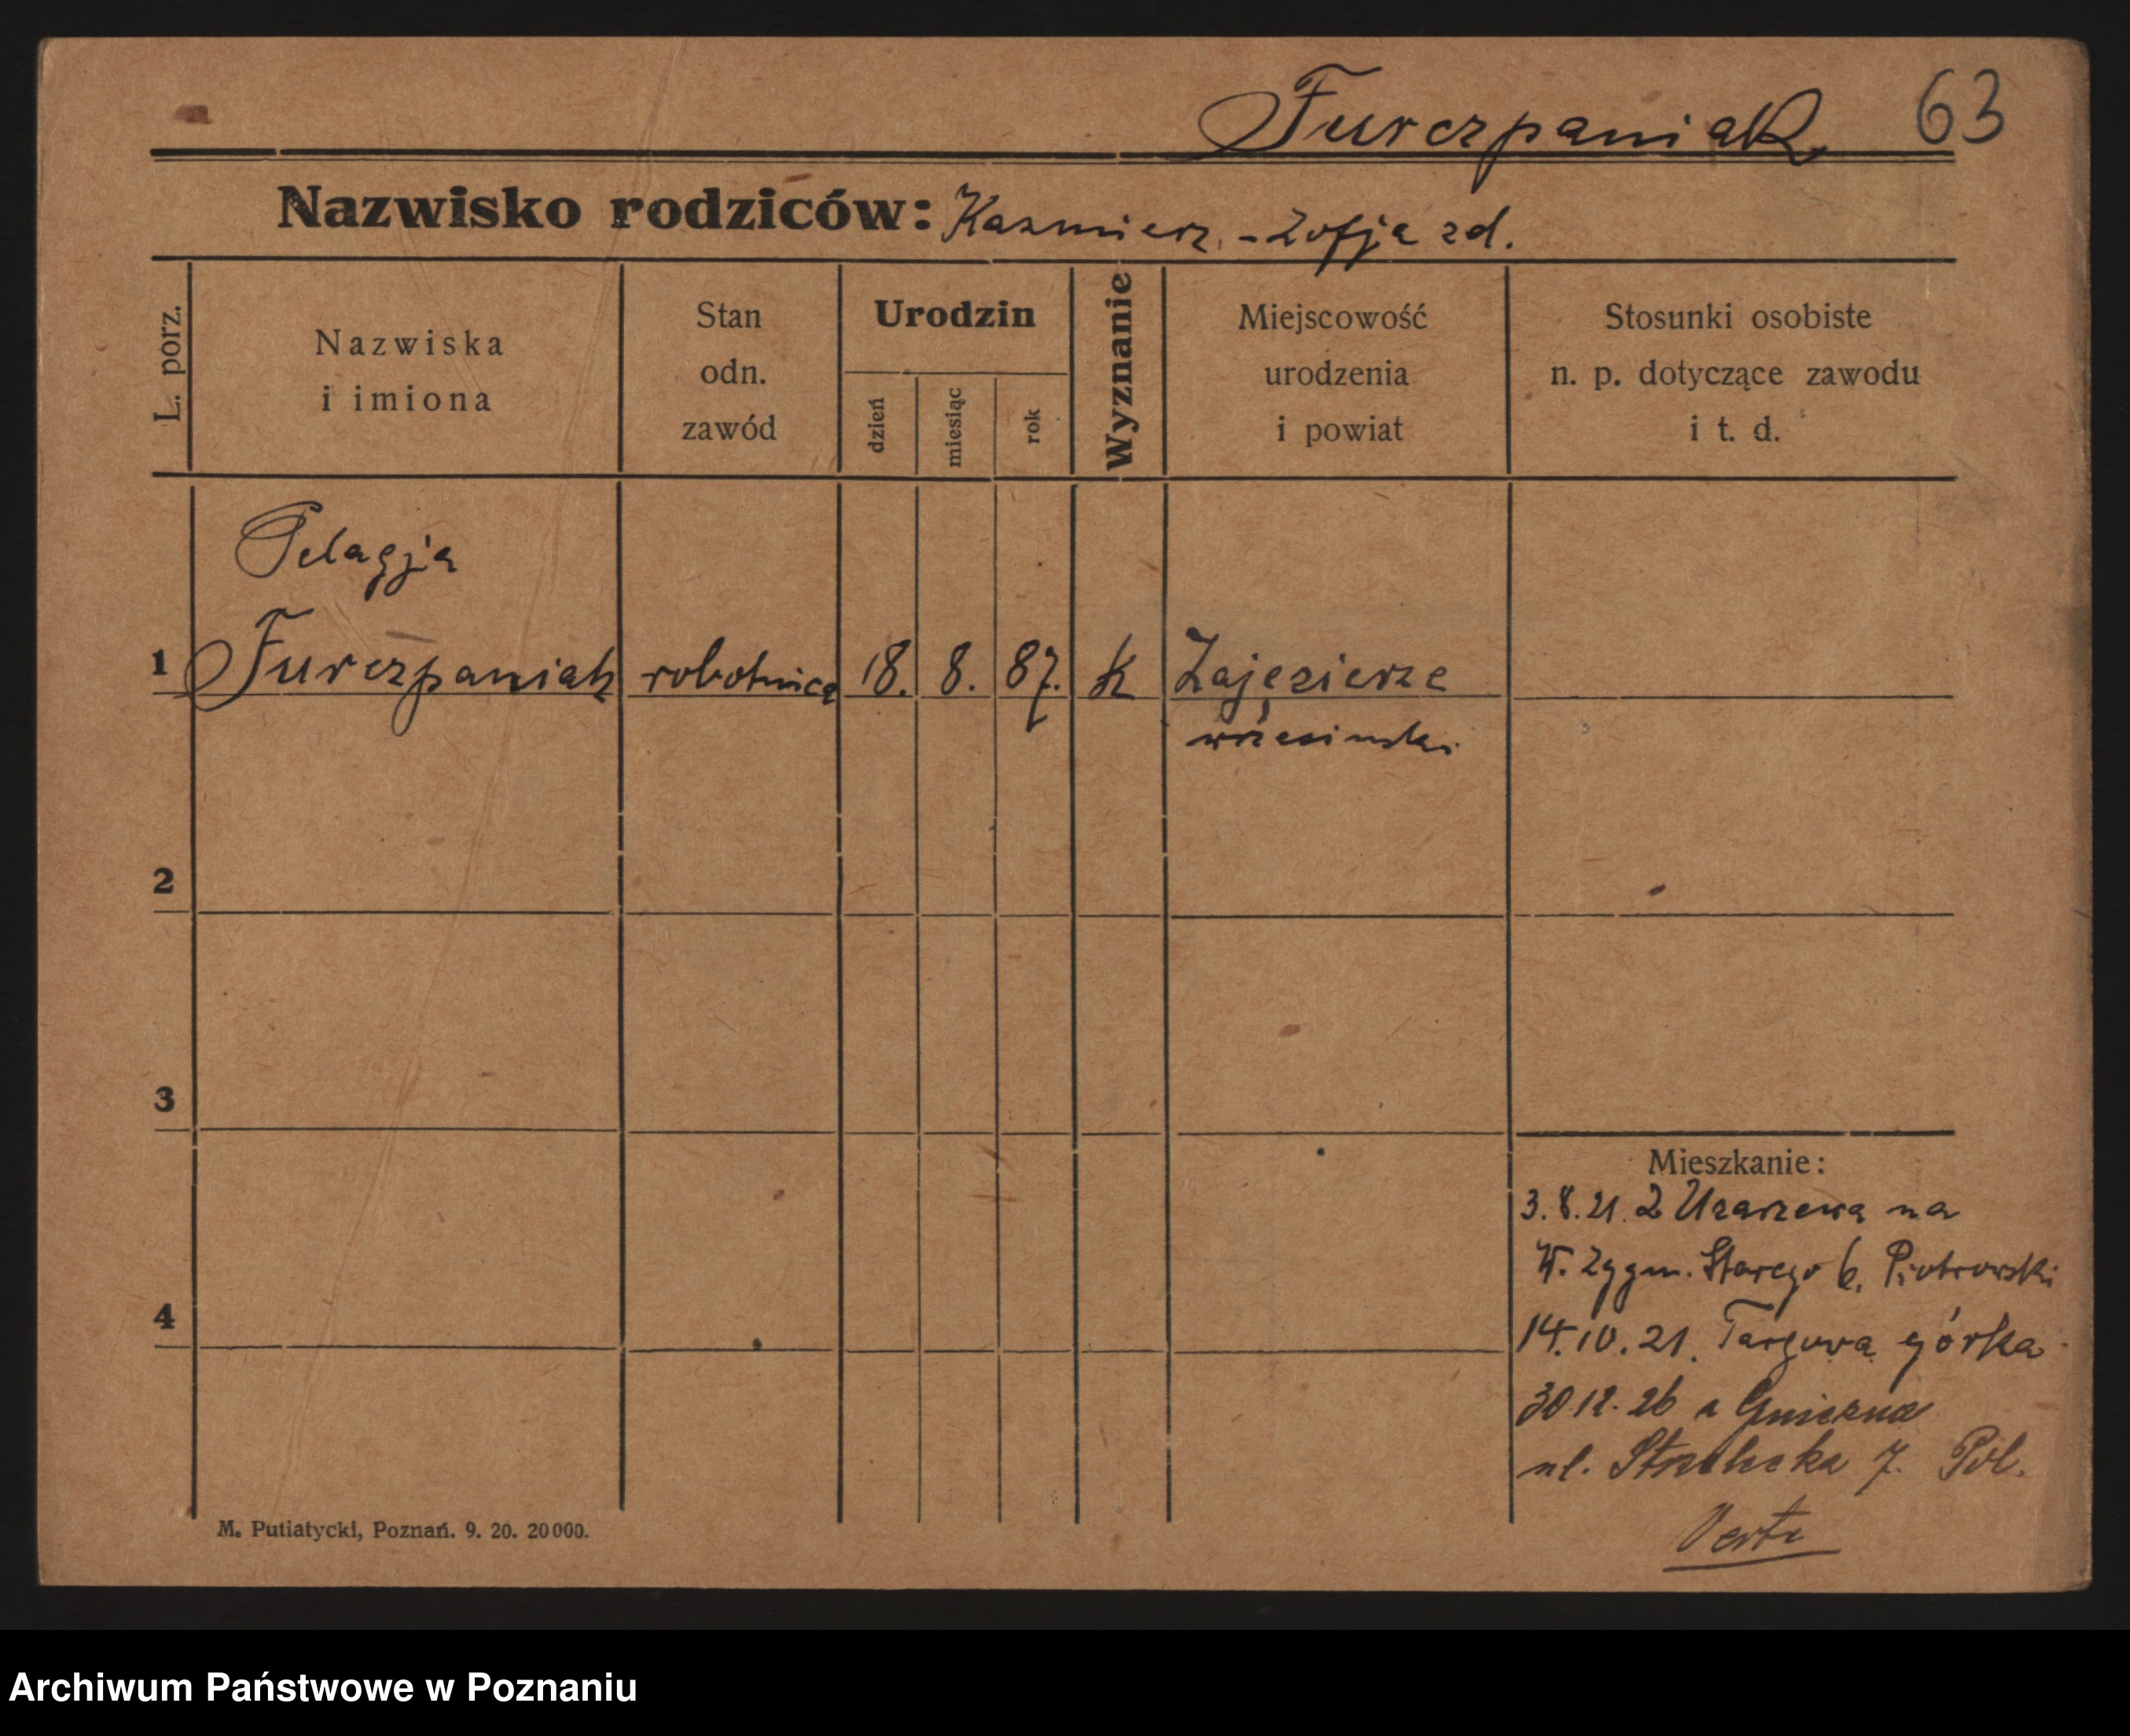 Furczpaniak 63
Nazwisko rodziców: Kazmierz - Zofja zd.
L. porz.
Nazwiska
i imiona
Stan
odn.
zawód
Urodzin
dzień
miesiąc
rok
Wyznanie
Miejscowość
urodzenia
i powiat
Stosunki osobiste
n. p. dotyczące zawodu
i t. d.
Pelagja
1 Furczpaniak robotnica 18. 8. 87. k Zajezierze
wrzesinski
2
3
4
Mieszkanie:
3.8.21. Z Uzarzewa na
W. Zygm. Starego 6. Piotrowski
14.10.21. Targowa górka
30.12.26 z Gniezna
ul. Strzelecka 7. Pol.
Verte
M. Putiatycki, Poznań. 9. 20. 20000.
Archiwum Państwowe w Poznaniu